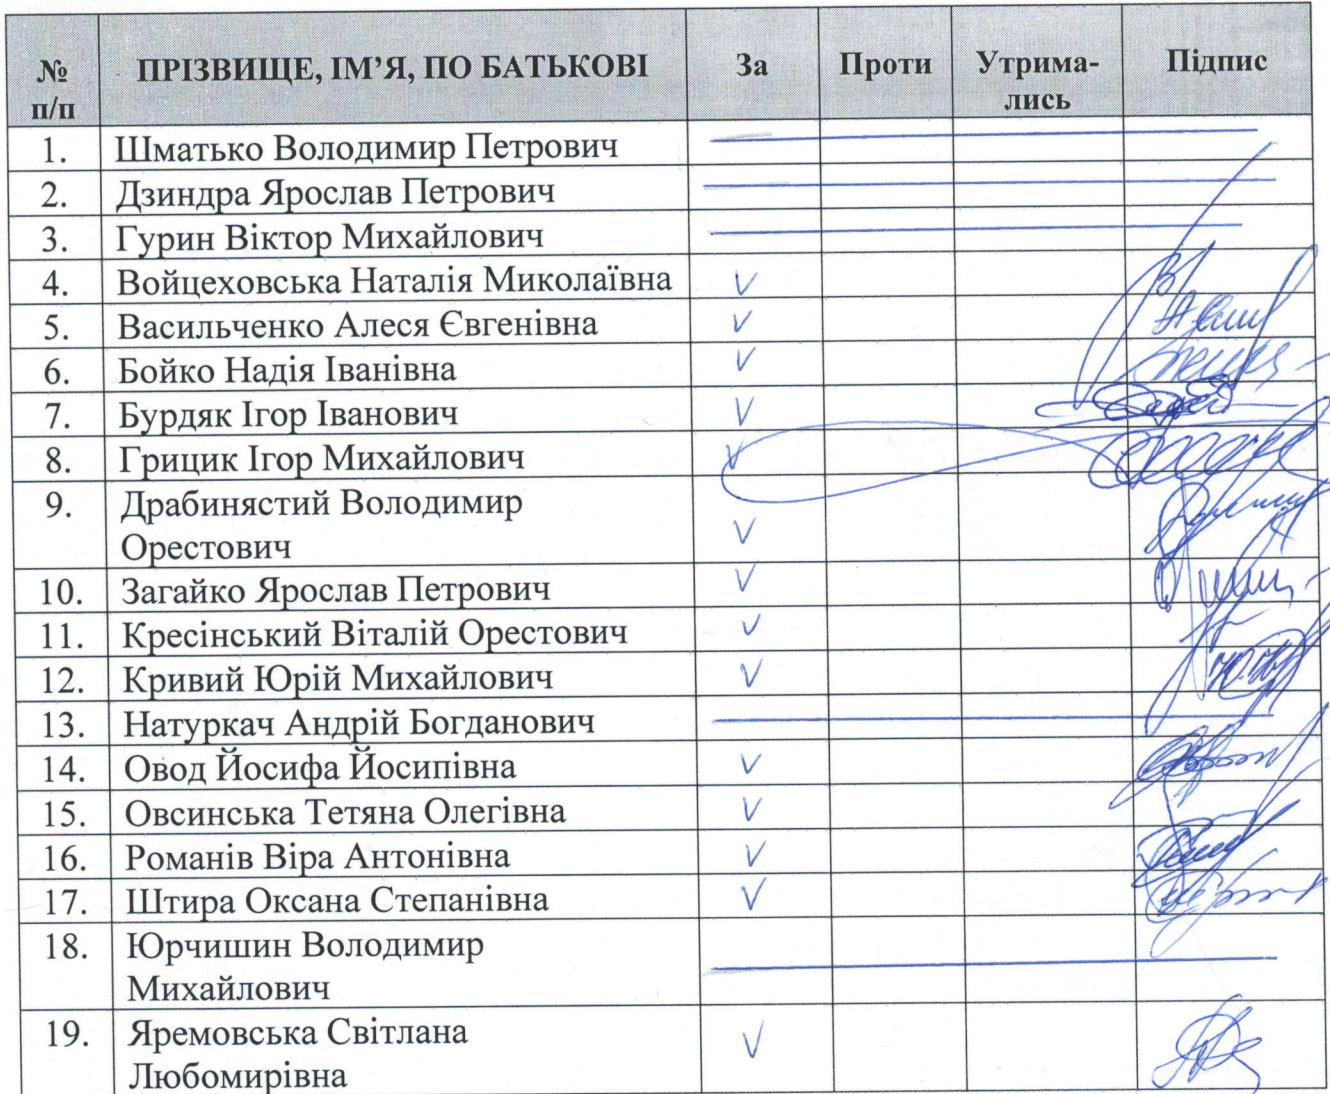 № п/п ПРІЗВИЩЕ, ІМ’Я, ПО БАТЬКОВІ За Проти Утрима-лись Підпис
1. Шматько Володимир Петрович
2. Дзиндра Ярослав Петрович
3. Гурин Віктор Михайлович
4. Войцеховська Наталія Миколаївна V
5. Васильченко Алеся Євгенівна V
6. Бойко Надія Іванівна V
7. Бурдяк Ігор Іванович V
8. Грицик Ігор Михайлович V
9. Драбинястий Володимир
Орестович V
10. Загайко Ярослав Петрович V
11. Кресінський Віталій Орестович V
12. Кривий Юрій Михайлович V
13. Натуркач Андрій Богданович
14. Овод Йосифа Йосипівна V
15. Овсинська Тетяна Олегівна V
16. Романів Віра Антонівна V
17. Штира Оксана Степанівна V
18. Юрчишин Володимир
Михайлович
19. Яремовська Світлана V
Любомирівна